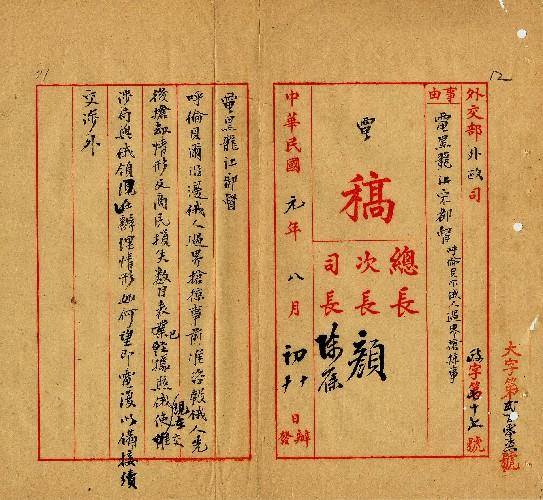 12
大字第
外交部 外政司 政字第十七號
事由
電黑龍江宋都督呼倫貝尔俄人過界搶掠事
電
稿
總長
次長 顏
司長 陳籙
中華民國 元年 八月 初十 日 辦發
電黑龍江都督
呼倫貝爾沿邊俄人過界搶掠事前准咨報俄人先
後搶劫情形及商民損失數目表業已經據照俄使惟現在交
涉局與俄領現在辦理情形如何望即電復以備接續
交涉外